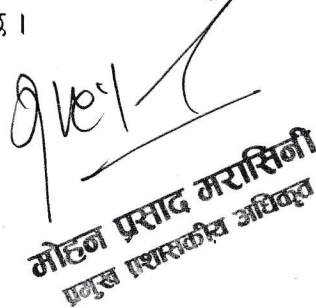 छ ।
मोहन प्रसाद मरासिनी
प्रमुख प्रशासकीय अधिकृत